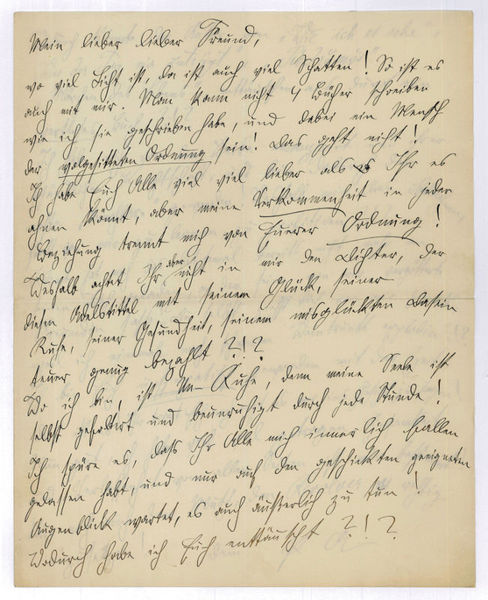 Mein lieber lieber Freund,
wo viel Licht ist, da ist auch viel Schatten! So ist es
auch mit mir. Man kann nicht 4 Bücher schreiben
wie ich sie geschrieben habe, und dabei ein Mensch
der Ordnung sein! Das geht nicht!
Ich habe Euch Alle viel viel lieber als Ihr es
ahnen könnt, aber meine Verkommenheit in jeder
Beziehung trennt mich von Euerer Ordnung!
Weshalb achtet Ihr aber nicht in mir den Dichter, der
diesen Adelstitel mit seinem Glück, seiner
Ruhe, seiner Gesundheit, seinem misglückten Dasein
teuer genug bezahlt ?!?
Wo ich bin, ist Un-Ruhe, denn meine Seele ist
selbst gefoltert und beunruhigt durch jede Stunde!
Ich spüre es, dass Ihr Alle mich innerlich fallen
gelassen habt, und nur auf den geschickten geeigneten
Augenblick wartet, es auch äußerlich zu tun!
Wodurch habe ich Euch enttäuscht ?!?